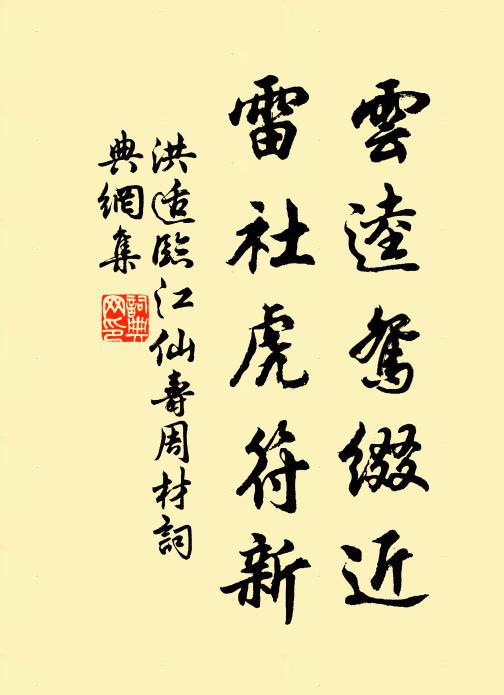 雲逵鴛綴近
雷社虎符新
洪适臨江仙壽周材詞
典網集
詞典網印